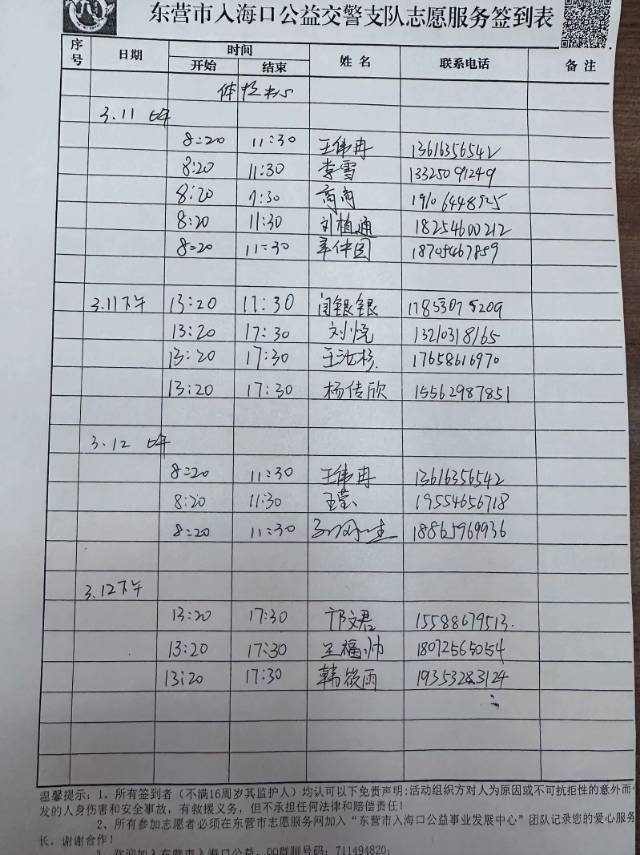 东营市入海口公益交警支队志愿服务签到表
序号 日期 时间 开始 结束 姓名 联系电话 备注
3.11 上午
8:20 11:30 王伟冉 13616356542
8:20 11:30 李雪 13325091249
8:20 11:30 商商 19106448525
8:20 11:30 刘植通 18254600212
8:20 11:30 18705467859
3.11下午 13:20 17:30 闫银银 17853075209
13:20 17:30 刘悦 13210318165
13:20 17:30 王汝杉 17658616970
13:20 17:30 杨传欣 15562987851
3.12 上午
8:20 11:30 王伟冉 13616356542
8:20 11:30 王莹 19554656718
8:20 11:30 18865969936
3.12下午
13:20 17:30 邝文君 15588679513
13:20 17:30 王福帅 18072565054
13:20 17:30 韩筱雨 19353283124
温馨提示:1、所有签到者(不满16周岁其监护人)均认可以下免责声明:活动组织方对人为原因或不可抗拒性的意外而
发的人身伤害和安全事故,有救援义务,但不承担任何法律和赔偿责任!
2、所有参加志愿者必须在东营市志愿服务网加入“东营市入海口公益事业发展中心”团队记录您的爱心服务
长,谢谢合作!
3、欢迎加入东营市入海口公益,QQ群聊号码:711494820,